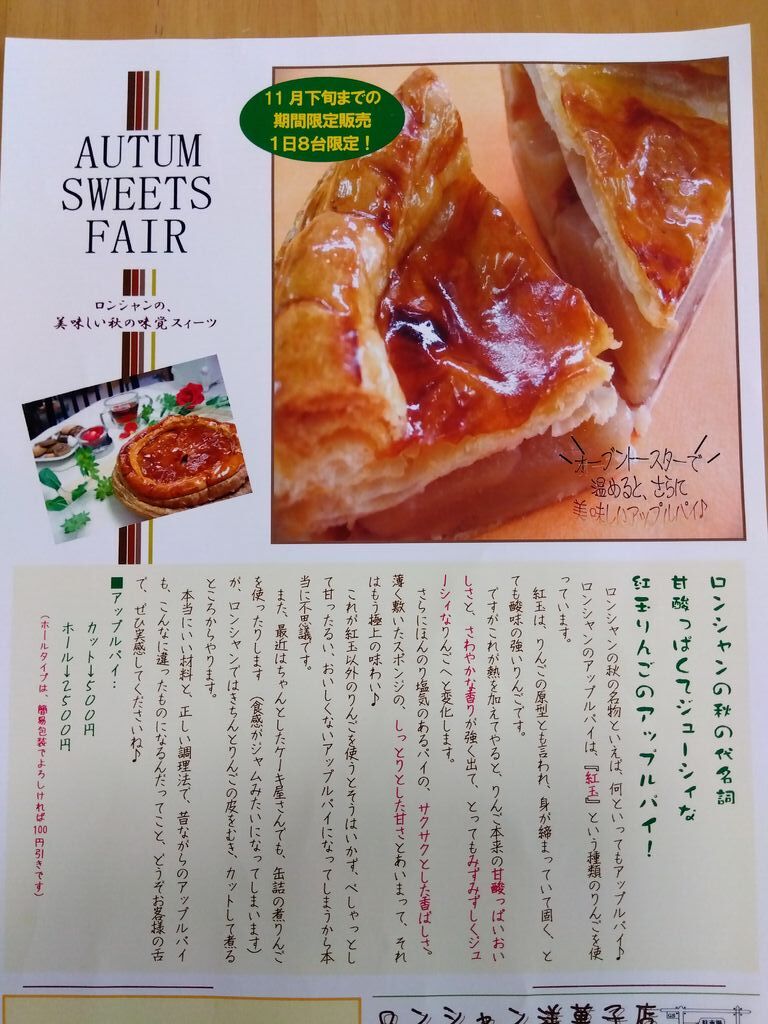 AUTUM
SWEETS
FAIR
ロンシャンの、
美味しい秋の味覚スィーツ
11月下旬までの
期間限定販売
1日8台限定！
オーブントースターで
温めると、さらに
美味しいアップルパイ♪
ロンシャンの秋の代名詞
甘酸っぱくてジューシィな
紅玉りんごのアップルパイ！
ロンシャンの秋の名物といえば、何といってもアップルパイ♪
ロンシャンのアップルパイは、『紅玉』という種類のりんごを使
っています。
紅玉は、りんごの原型とも言われ、身が締まっていて固く、と
ても酸味の強いりんごです。
ですがこれが熱を加えてやると、りんご本来の甘酸っぱいおい
しさと、さわやかな香りが強く出て、とってもみずみずしくジュ
ーシィなりんごへと変化します。
さらにほんのり塩気のあるパイの、サクサクとした香ばしさ。
薄く敷いたスポンジの、しっとりとした甘さとあいまって、それ
はもう極上の味わい♪
これが紅玉以外のりんごを使うとそうはいかず、べしゃっとし
て甘ったるい、おいしくないアップルパイになってしまうから本
当に不思議です。
また、最近はちゃんとしたケーキ屋さんでも、缶詰の煮りんご
を使ったりします（食感がジャムみたいになってしまいます）
が、ロンシャンではきちんとりんごの皮をむき、カットして煮る
ところからやります。
本当にいい材料と、正しい調理法で、昔ながらのアップルパイ
も、こんなに違ったものになるんだってこと、どうぞお客様の舌
で、ぜひ実感してくださいね♪
■アップルパイ：
カット→500円
ホール→2500円
（ホールタイプは、簡易包装でよろしければ100円引きです）
ロンシャン洋菓子店